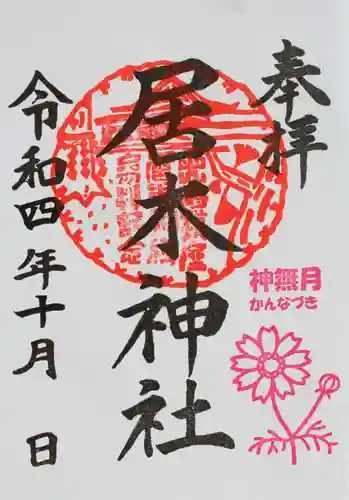 奉拝
居木神社
神無月
かんなづき
令和四年十月 日